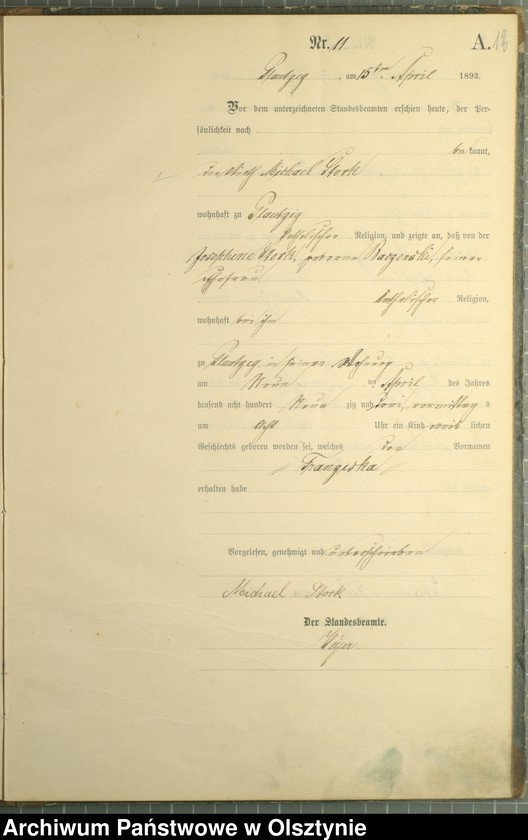 Nr. 11.
A. 12
Plautzig, am 15ten April 1893.
Vor dem unterzeichneten Standesbeamten erschien heute, der Per-
sönlichkeit nach
be kannt,
der Michael Stork
wohnhaft zu Plautzig
katholischer Religion, und zeigte an, daß von der
Josephine Stork, geborene Raczewski, seiner
Ehefrau
katholischer Religion,
wohnhaft bei ihm
zu Plautzig in seiner Wohnung
am Neun ten April des Jahres
tausend acht hundert Neun zig und drei, vormittag s
um Acht Uhr ein Kind weib lichen
Geschlechts geboren worden sei, welches den Vornamen
Franziska
erhalten habe
Vorgelesen, genehmigt und unterschrieben
Michael Stork
Der Standesbeamte.
Archiwum Państwowe w Olsztynie